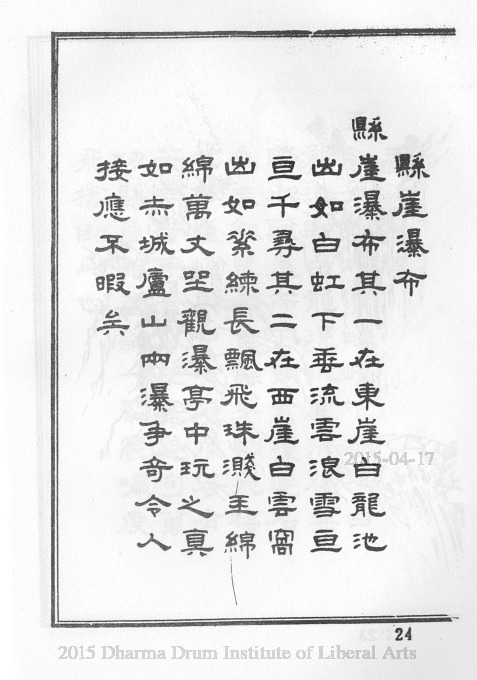 縣崖瀑布
縣崖瀑布其一在東崖白龍池
出如白虹下垂流雲浪雪亘
亘千尋其二在西崖白雲窩
出如素練長飄飛珠濺玉綿
綿萬丈坐觀瀑亭中玩之真
如赤城廬山兩瀑爭奇令人
接應不暇矣
2015-04-17
24
2015 Dharma Drum Institute of Liberal Arts